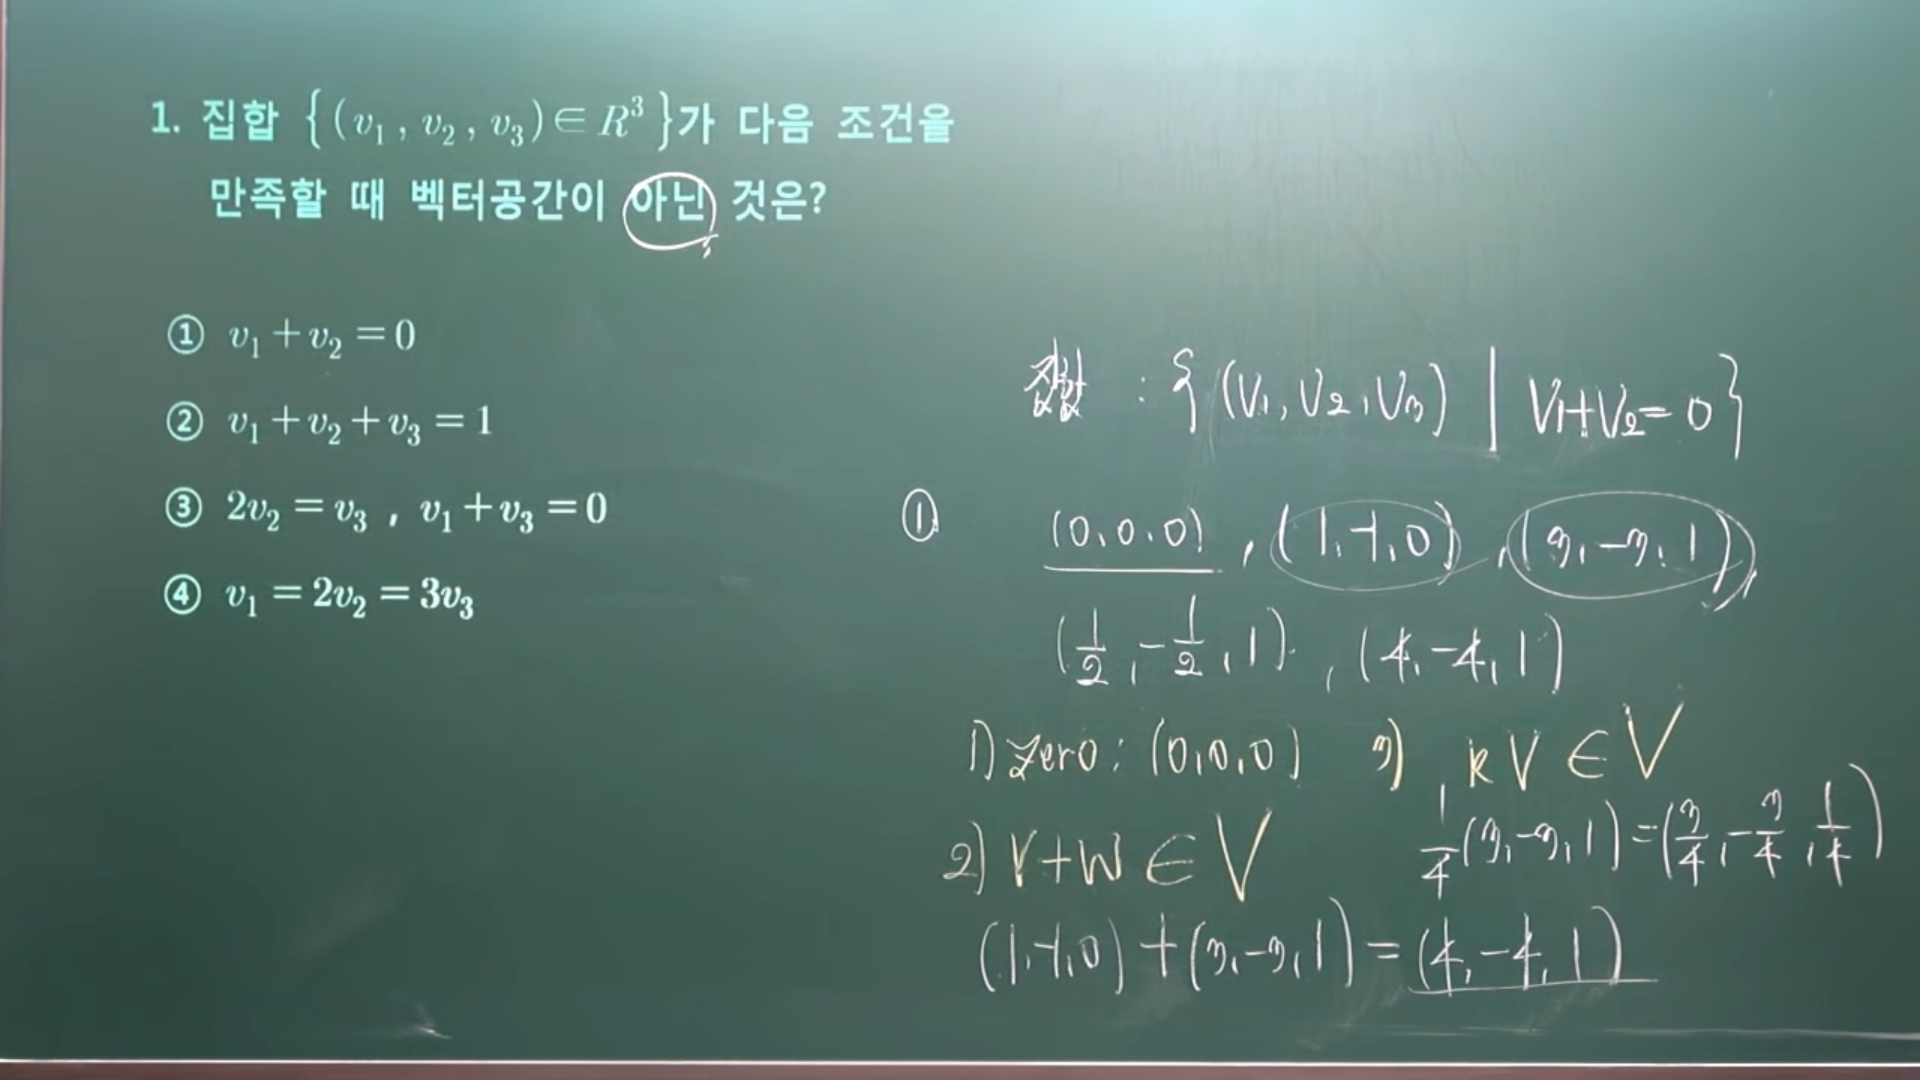 1. 집합 {(v₁, v₂, v₃)∈R³}가 다음 조건을
만족할 때 벡터공간이 아닌 것은?
① v₁+v₂=0
② v₁+v₂+v₃=1
③ 2v₂=v₃, v₁+v₃=0
④ v₁=2v₂=3v₃
: {(V₁, V₂, V₃) | V₁+V₂=0}
① (0,0,0), (1,-1,0), (3,-3,1),
(1/2, -1/2, 1), (4,-4,1)
1) zero: (0,0,0) 3) kV∈V
2) V+W∈V 1/4(3,-3,1)=(3/4, -3/4, 1/4)
(1,-1,0)+(3,-3,1)=(4,-4,1)